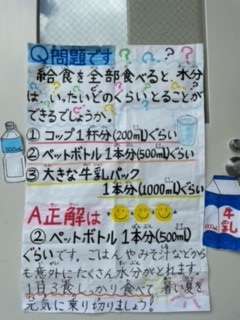 Q問題です
給食を全部食べると、水分
は、いったいどのくらいとることが
できるでしょうか。
①コップ1杯分(200ml)ぐらい
②ペットボトル1本分(500ml)ぐらい
③大きな牛乳パック
1本分(1000ml)ぐらい
A正解は
②ペットボトル1本分(500ml)
ぐらいです。ごはんやみそ汁などから
も意外にたくさん水分がとれます。
1日3食しっかり食べて、暑い夏を
元気に乗り切りましょう!
牛乳